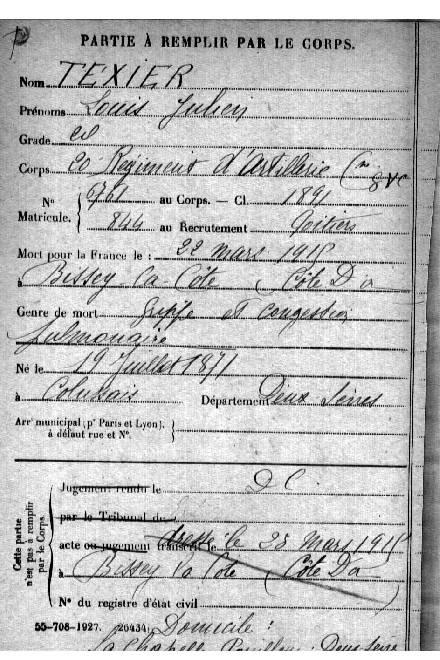 PARTIE À REMPLIR PAR LE CORPS.
Nom TEXIER
Prénoms Louis Julien
Grade
Corps Régiment d'Artillerie
No 6761 au Corps. — Cl. 1891
Matricule. 844 au Recrutement Poitiers
Mort pour la France le : 22 mars 1915
à Bissey la Côte (Côte D'or
Genre de mort grippe et congestion
pulmonaire
Né le 19 Juillet 1871
à Département Deux Sèvres
Arrt municipal (pr Paris et Lyon),
à défaut rue et No.
Cette partie n'est pas à remplir par le Corps.
Jugement rendu le D C
par le Tribunal de
acte ou jugement transcrit le dressé le 23 mars 1915
à Bissey la Côte (Côte D'or
No du registre d'état civil
55-708-1927. [26434] Domicile :
La Chapelle Deux-Sèvres